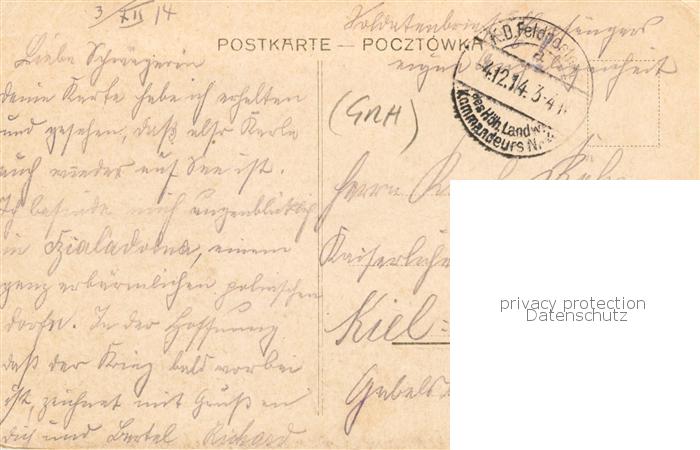 3/XII 14
Soldatenbrief Empfängers
POSTKARTE — POCZTÓWKA
eigne Angelegenheit
K.D. Feldpost
4.12.14. 3-4
des Höh. Landw.
Kommandeurs N
Liebe Schwägerin
deine Karte habe ich erhalten
und gesehen, daß also Karle
auch wieder auf See ist.
Ich befinde mich augenblicklich
in Dzialadolna, einem
ganz erbärmlichen polnischen
Dorfe. In der Hoffnung
daß der Krieg bald vorbei
ist, zeichnet mit Gruß an
dich und Bertel Richard
(GRH)
Herrn
Kaiserliche
Kiel-
privacy protection
Datenschutz